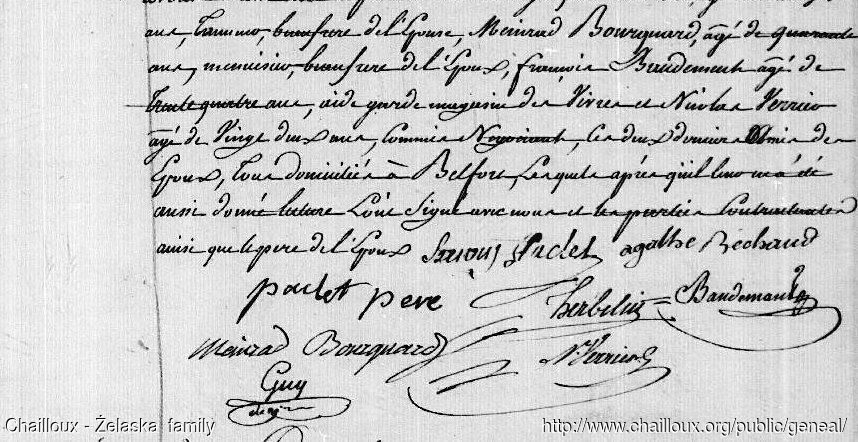 ans, beaufrere de l'Epouse, Meinrad Bourquard, agé de quarante
ans, menuisier, beaufrere de l'Epoux, françois Baudement agé de
trente quatre ans, aide garde magasin des Vivres et Nicolas Verrier
agé de Vingt deux ans, Commis Negociant, Ces deux derniers amis des
Epoux, Tous domiciliés à Belfort, Lesquels après qu'il leur en a été
aussi donné lecture L'ont Signé avec nous et les parties Contractantes
ainsi que le pere de l'Epoux agathe Bechaud
paclet pere herbelin Baudement
Meinrad Bourquard N. Verrier
Guy
Chailloux - Żelaska family http://www.chailloux.org/public/geneal/